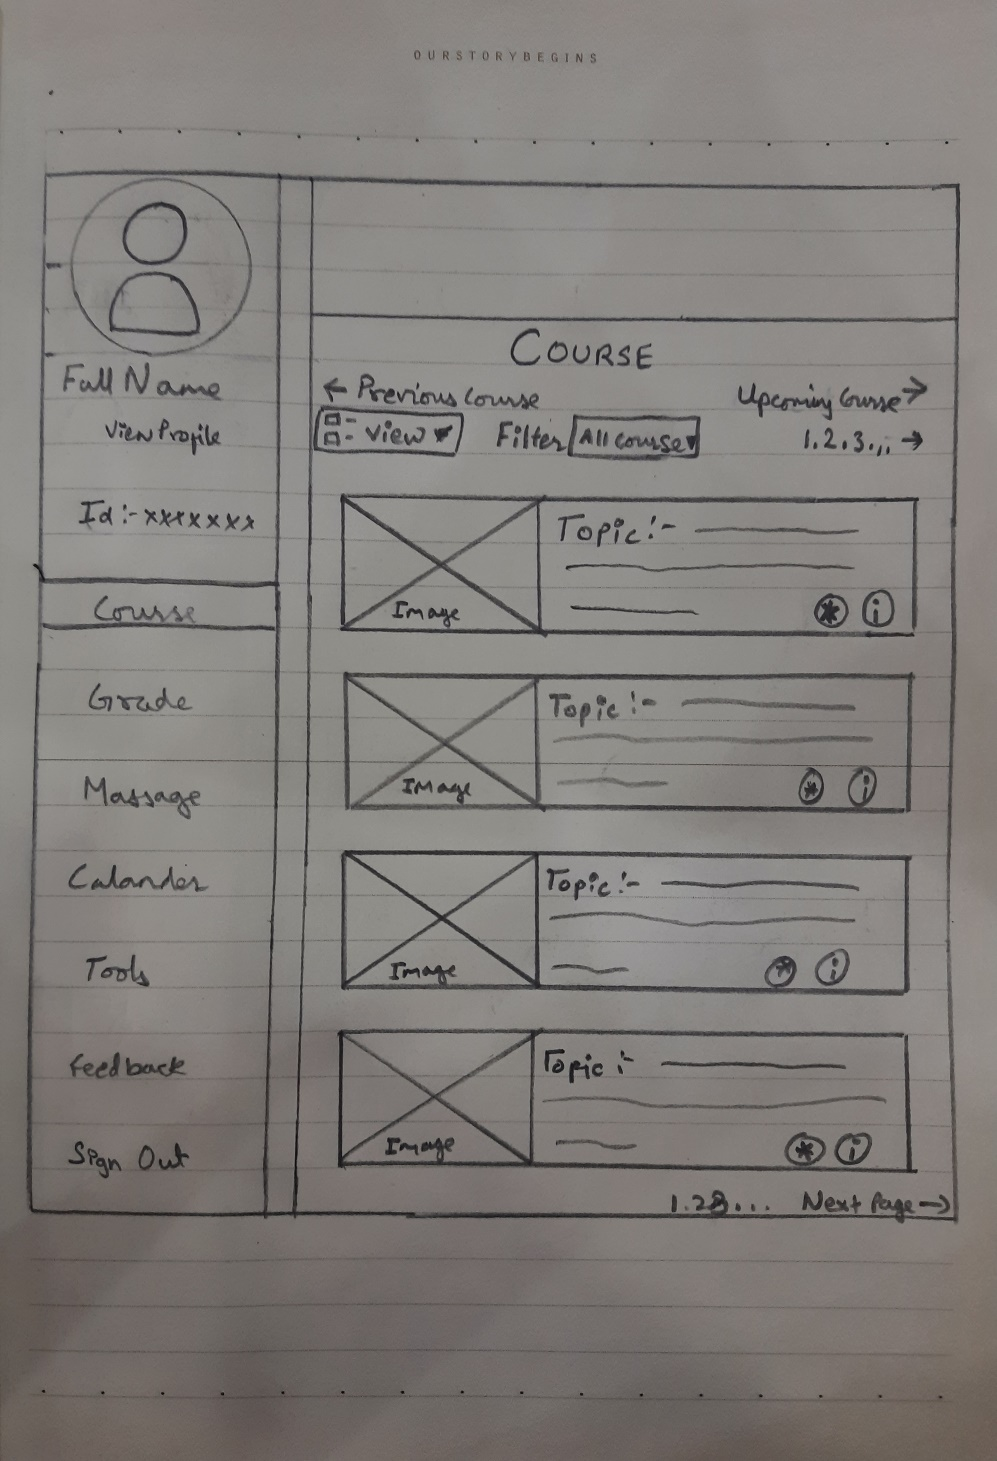 OURSTORYBEGINS
Full Name
View Profile
Id :- xxxxxxx
Course
Grade
Massage
Calander
Tools
Feedback
Sign Out
COURSE
← Previous Course
Upcoming Course →
View ▼ Filter All course ▼
1.2.3.,,. →
Topic :-
Image
* i
Topic :-
Image
* i
Topic :-
Image
* i
Topic :-
Image
* i
1.23... Next Page →